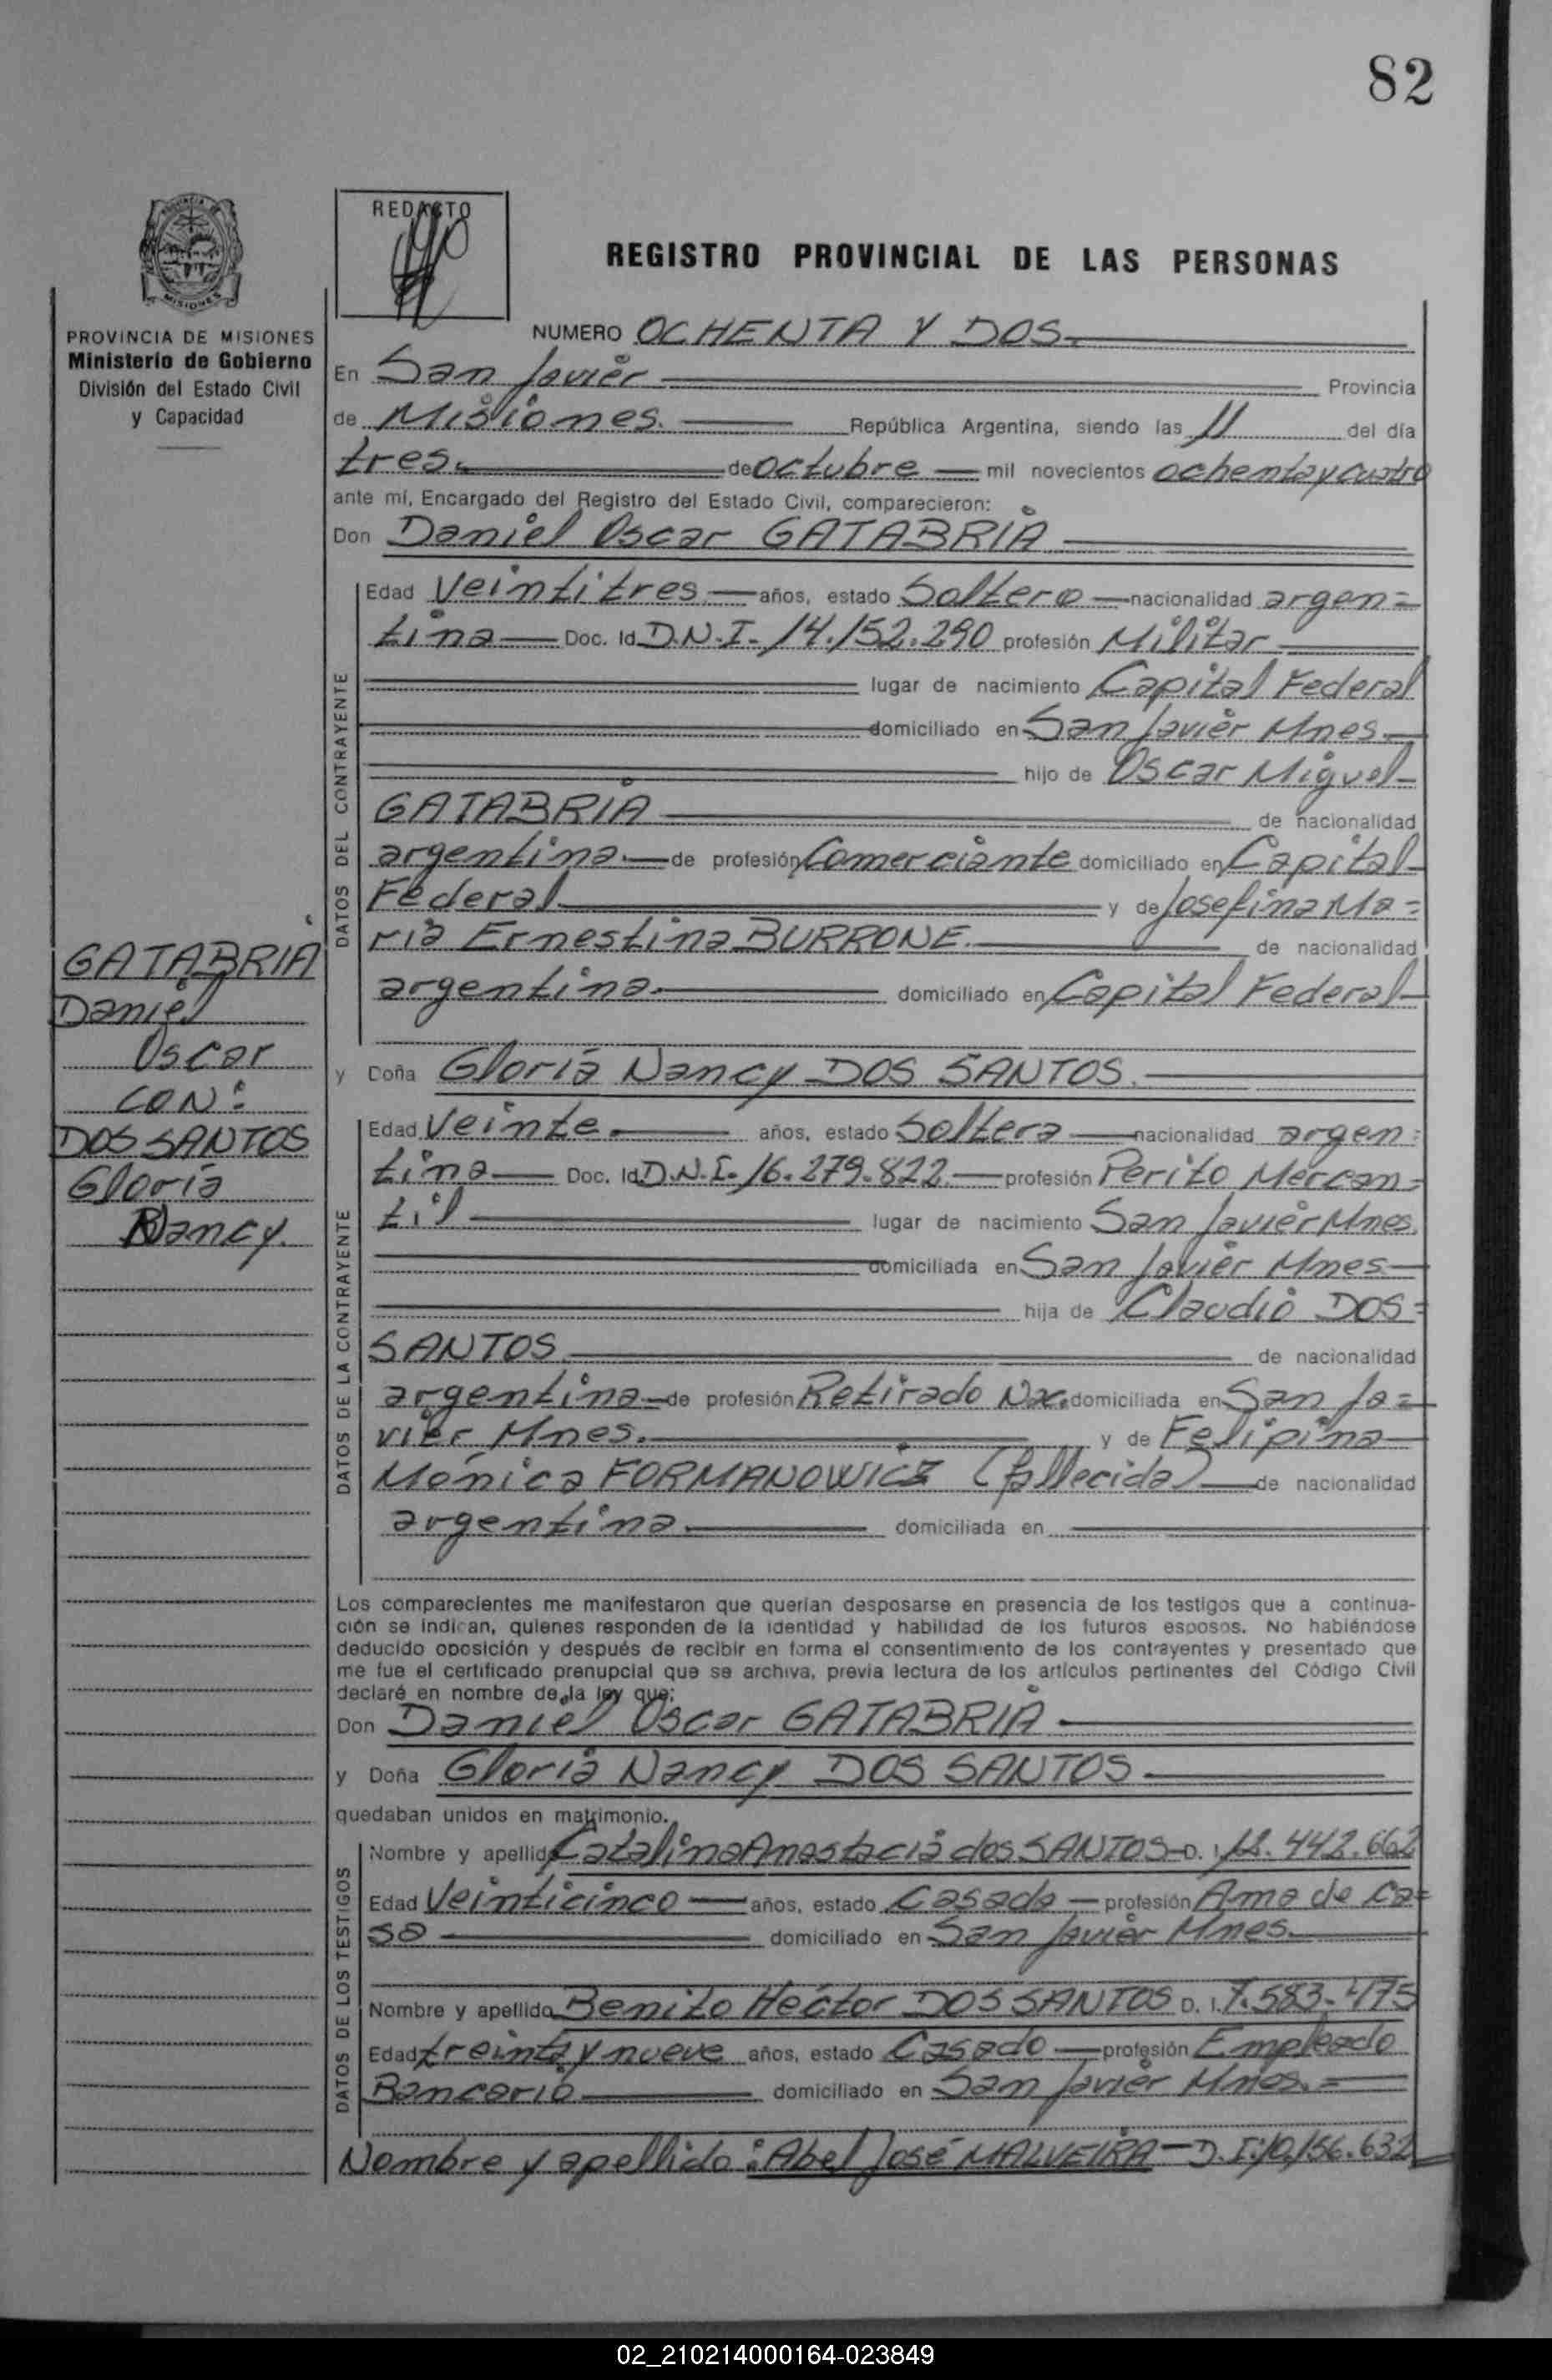 82
PROVINCIA DE MISIONES
Ministerio de Gobierno
División del Estado Civil
y Capacidad
REDACTO
REGISTRO PROVINCIAL DE LAS PERSONAS
NUMERO OCHENTA Y DOS.
En San Javier Provincia
de Misiones. República Argentina, siendo las 11 del día
tres. de octubre mil novecientos ochenta y cuatro
ante mí, Encargado del Registro del Estado Civil, comparecieron:
Don Daniel Oscar GATABRIA
DATOS DEL CONTRAYENTE
Edad Veintitres. años, estado Soltero nacionalidad argen=
tina Doc. Id. D.N.I. 14.152.290 profesión Militar
lugar de nacimiento Capital Federal
domiciliado en San Javier Mnes.
hijo de Oscar Miguel
GATABRIA de nacionalidad
argentina. de profesión Comerciante domiciliado en Capital
Federal y de Josefina Ma=
ria Ernestina BURRONE. de nacionalidad
argentina. domiciliado en Capital Federal
y Doña Gloria Nancy DOS SANTOS.
DATOS DE LA CONTRAYENTE
Edad Veinte. años, estado Soltera nacionalidad argen=
tina Doc. Id. D.N.I. 16.279.822. profesión Perito Mercan=
til lugar de nacimiento San Javier Mnes.
domiciliada en San Javier Mnes
hija de Claudio DOS=
SANTOS de nacionalidad
argentina de profesión Retirado Nac. domiciliada en San Ja=
vier Mnes. y de Felipina
Mónica FORMANOWICZ (fallecida) de nacionalidad
argentina. domiciliada en
Los comparecientes me manifestaron que querían desposarse en presencia de los testigos que a continua-
ción se indican, quienes responden de la identidad y habilidad de los futuros esposos. No habiéndose
deducido oposición y después de recibir en forma el consentimiento de los contrayentes y presentado que
me fue el certificado prenupcial que se archiva, previa lectura de los artículos pertinentes del Código Civil
declaré en nombre de la ley que:
Don Daniel Oscar GATABRIA
y Doña Gloria Nancy DOS SANTOS.
quedaban unidos en matrimonio.
DATOS DE LOS TESTIGOS
Nombre y apellido Catalina Anastacia dos SANTOS D. I. 12.442.662
Edad Veinticinco años, estado Casada profesión Ama de Ca=
sa domiciliado en San Javier Mnes.
Nombre y apellido Benito Héctor DOS SANTOS D. I. 7.583.475
Edad treinta y nueve años, estado Casado profesión Empleado
Bancario domiciliado en San Javier Mnes.=
Nombre y apellido: Abel José MALVEIRA D.I. 10.156.632
GATABRIA
Daniel
Oscar
CON:
DOS SANTOS
Gloria
Nancy.
02_210214000164-023849